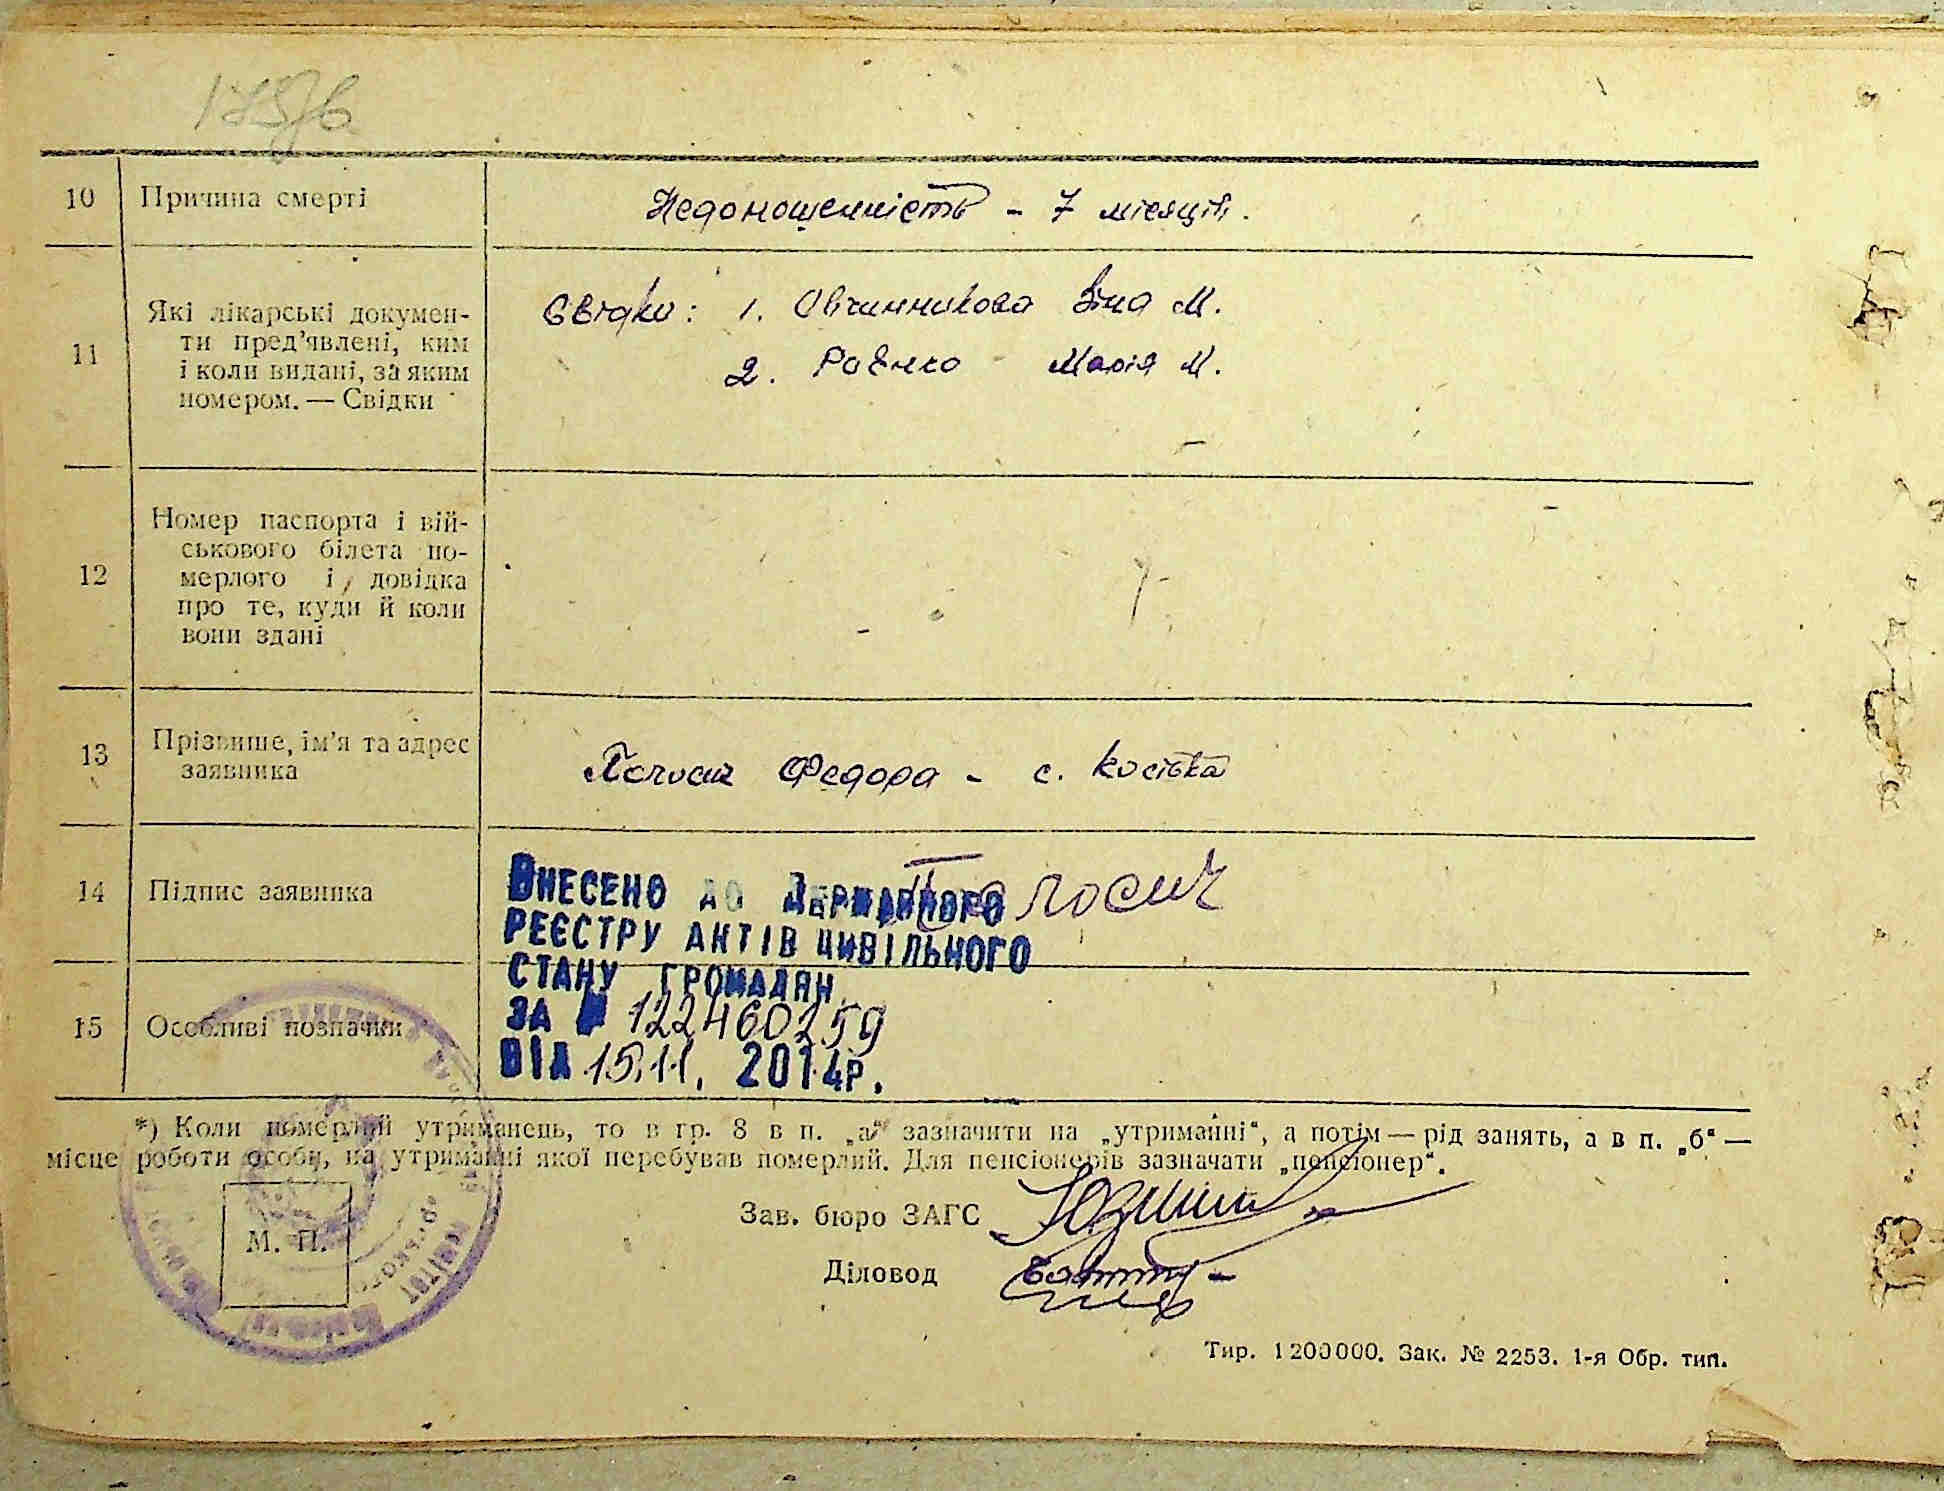 10 Причина смерті Недоношенність - 7 місяців.
11 Які лікарські докумен-
ти пред'явлені, ким
і коли видані, за яким
номером. — Свідки
Свідки: 1. Овчинникова Зіна М.
2. Раєнко Марія М.
12 Номер паспорта і вій-
ськового білета по-
мерлого і довідка
про те, куди й коли
вони здані
13 Прізвище, ім'я та адрес
заявника
Полосич Федора - с. Косівка
14 Підпис заявника Полосич
15 Особливі позначки
ВНЕСЕНО ДО ДЕРЖАВНОГО
РЕЄСТРУ АКТІВ ЦИВІЛЬНОГО
СТАНУ ГРОМАДЯН
ЗА № 122460259
ВІД 15.11. 2014р.
*) Коли померлий утриманець, то в гр. 8 в п. „а“ зазначити на „утриманні“, а потім — рід занять, а в п. „б“ —
місце роботи особи, на утриманні якої перебував померлий. Для пенсіонерів зазначати „пенсіонер“.
М. П.
Зав. бюро ЗАГС
Діловод
Тир. 1200000. Зак. № 2253. 1-я Обр. тип.